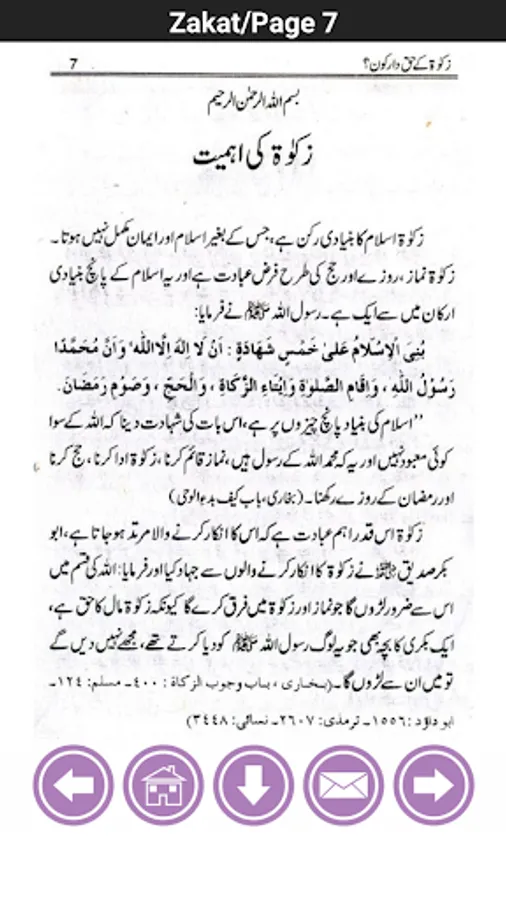 Zakat/Page 7
زکوٰۃ کے حق دار کون؟ 7
بسم اللہ الرحمٰن الرحیم
زکوٰۃ کی اہمیت
زکوٰۃ اسلام کا بنیادی رکن ہے، جس کے بغیر اسلام اور ایمان مکمل نہیں ہوتا۔
زکوٰۃ نماز، روزے اور حج کی طرح فرض عبادت ہے اور یہ اسلام کے پانچ بنیادی
ارکان میں سے ایک ہے۔ رسول اللہ ﷺ نے فرمایا:
بُنِیَ الْاِسْلَامُ عَلیٰ خَمْسٍ شَھَادَۃِ : اَنْ لَا اِلٰہَ اِلَّا اللّٰہُ وَاَنَّ مُحَمَّدًا
رَسُوْلُ اللّٰہِ ، وَاِقَامِ الصَّلوٰۃِ وَاِیْتَاءِ الزَّکَاۃِ ، وَالْحَجِّ ، وَصَوْمِ رَمَضَانَ.
’’اسلام کی بنیاد پانچ چیزوں پر ہے، اس بات کی شہادت دینا کہ اللہ کے سوا
کوئی معبود نہیں اور یہ کہ محمد اللہ کے رسول ہیں، نماز قائم کرنا، زکوٰۃ ادا کرنا، حج کرنا
اور رمضان کے روزے رکھنا۔ (بخاری، باب کیف بدء الوحی)
زکوٰۃ اس قدر اہم عبادت ہے کہ اس کا انکار کرنے والا مرتد ہو جاتا ہے، ابو
بکر صدیق نے زکوٰۃ کا انکار کرنے والوں سے جہاد کیا اور فرمایا: اللہ کی قسم میں
اس سے ضرور لڑوں گا جو نماز اور زکوٰۃ میں فرق کرے گا کیونکہ زکوٰۃ مال کا حق ہے،
ایک بکری کا بچہ بھی جو یہ لوگ رسول اللہ ﷺ کو دیا کرتے تھے، مجھے نہیں دیں گے
تو میں ان سے لڑوں گا۔ (بخاری ، باب وجوب الزکاۃ : ۴۰۰۔ مسلم: ۱۲۴۔
ابو داؤد : ۱۵۵۶۔ ترمذی: ۲۶۰۷۔ نسائی: ۳۴۴۸)